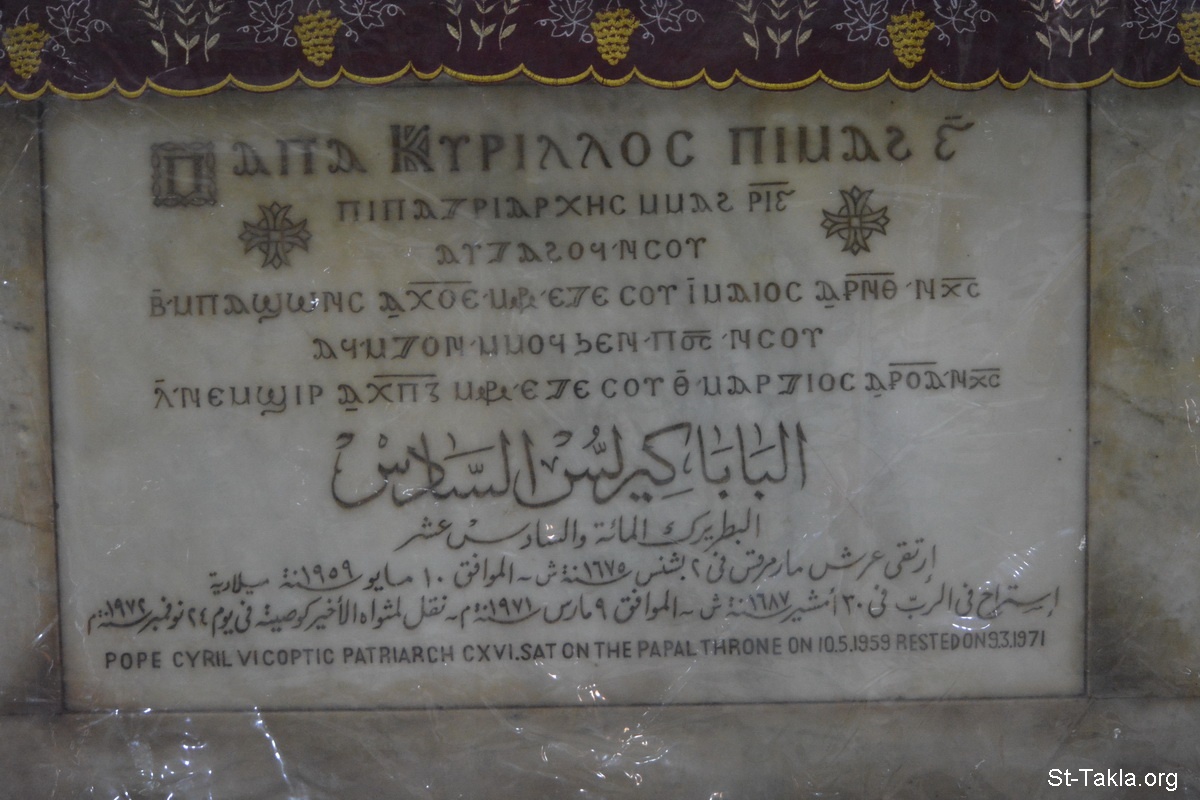 Ⲡⲁⲡⲁ Ⲕⲩⲣⲓⲗⲗⲟⲥ ⲡⲓⲙⲁϩ ⲋ̅
ⲡⲓⲡⲁⲧⲣⲓⲁⲣⲭⲏⲥ ⲙⲙⲁϩ ⲣ̅ⲓ̅ⲋ̅
ⲁⲩⲧⲁϩⲟϥ ⲛⲥⲟⲩ
ⲃ̅ ⲙⲡⲁϣⲱⲛⲥ ⲁ̲ⲭ̅ⲟ̅ⲉ̅ ⲉⲧⲉ ⲥⲟⲩ ⲓ̅ ⲙⲁⲓⲟⲥ ⲁ̲ⲣ̅ⲛ̅ⲑ̅ ⲛⲭ̅ⲥ̅
ⲁϥⲙⲧⲟⲛ ⲙⲙⲟϥ ϧⲉⲛ Ⲡⲟ̅ⲥ̅ ⲛⲥⲟⲩ
ⲗ̅ ⲛⲉⲙϣⲓⲣ ⲁ̲ⲭ̅ⲡ̅ⲍ̅ ⲉⲧⲉ ⲥⲟⲩ ⲑ̅ ⲙⲁⲣⲧⲓⲟⲥ ⲁ̲ⲣ̅ⲟ̅ⲁ̅ ⲛⲭ̅ⲥ̅
البَابَا كِيرلسُّ السَّادِسْ
البطريرك المائة والسادس عشر
إرتقى عرش مارمرقس فى ٢ بشنس سنة ١٦٧٥ ش ـ الموافق ١٠ مايو سنة ١٩٥٩ ميلادية
إستراح فى الربّ فى ٣٠ أمشير سنة ١٦٨٧ ش ـ الموافق ٩ مارس سنة ١٩٧١م ـ نقل لمثواه الأخير كوصيته فى يوم ٢٤ نوفمبر سنة ١٩٧٢م
POPE CYRIL VI COPTIC PATRIARCH CXVI. SAT ON THE PAPAL THRONE ON 10.5.1959 RESTED ON 9.3.1971
St-Takla.org